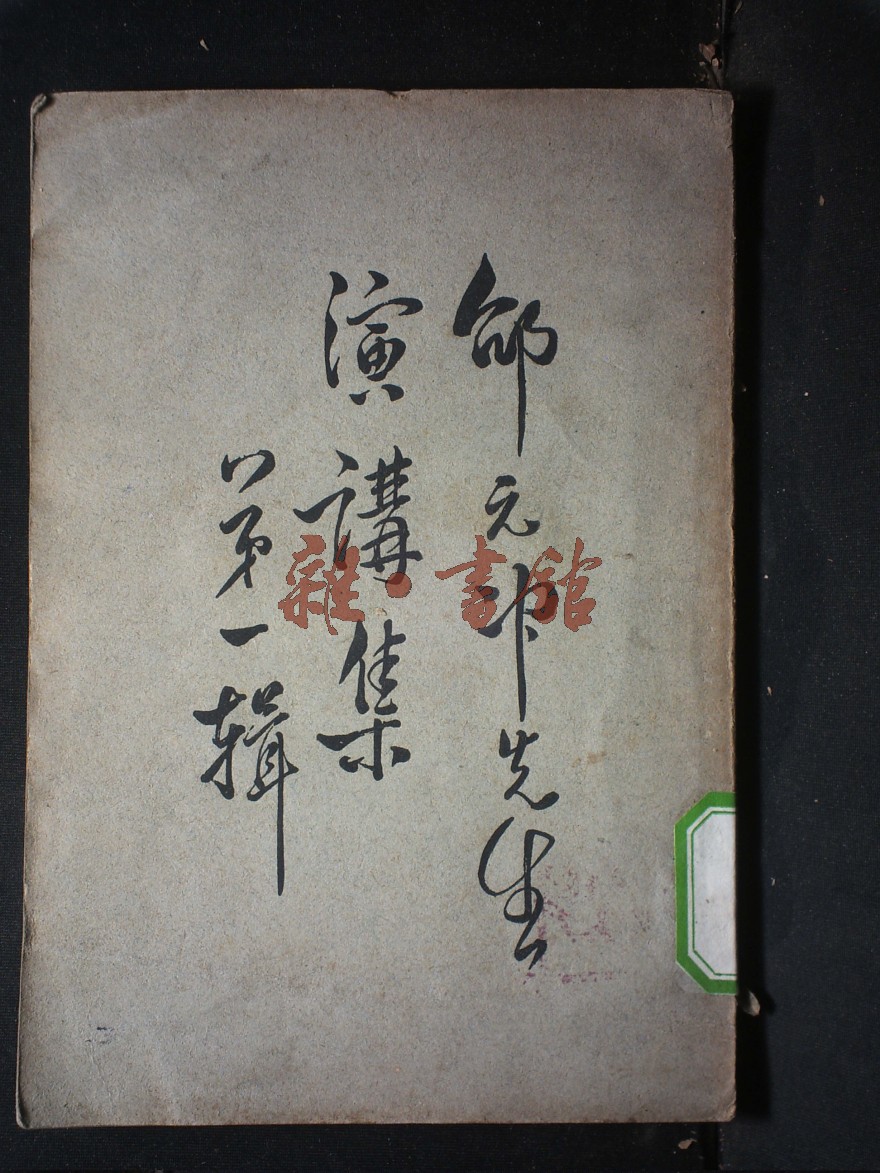 邵元冲先生
演講集
第一輯
雜·書館